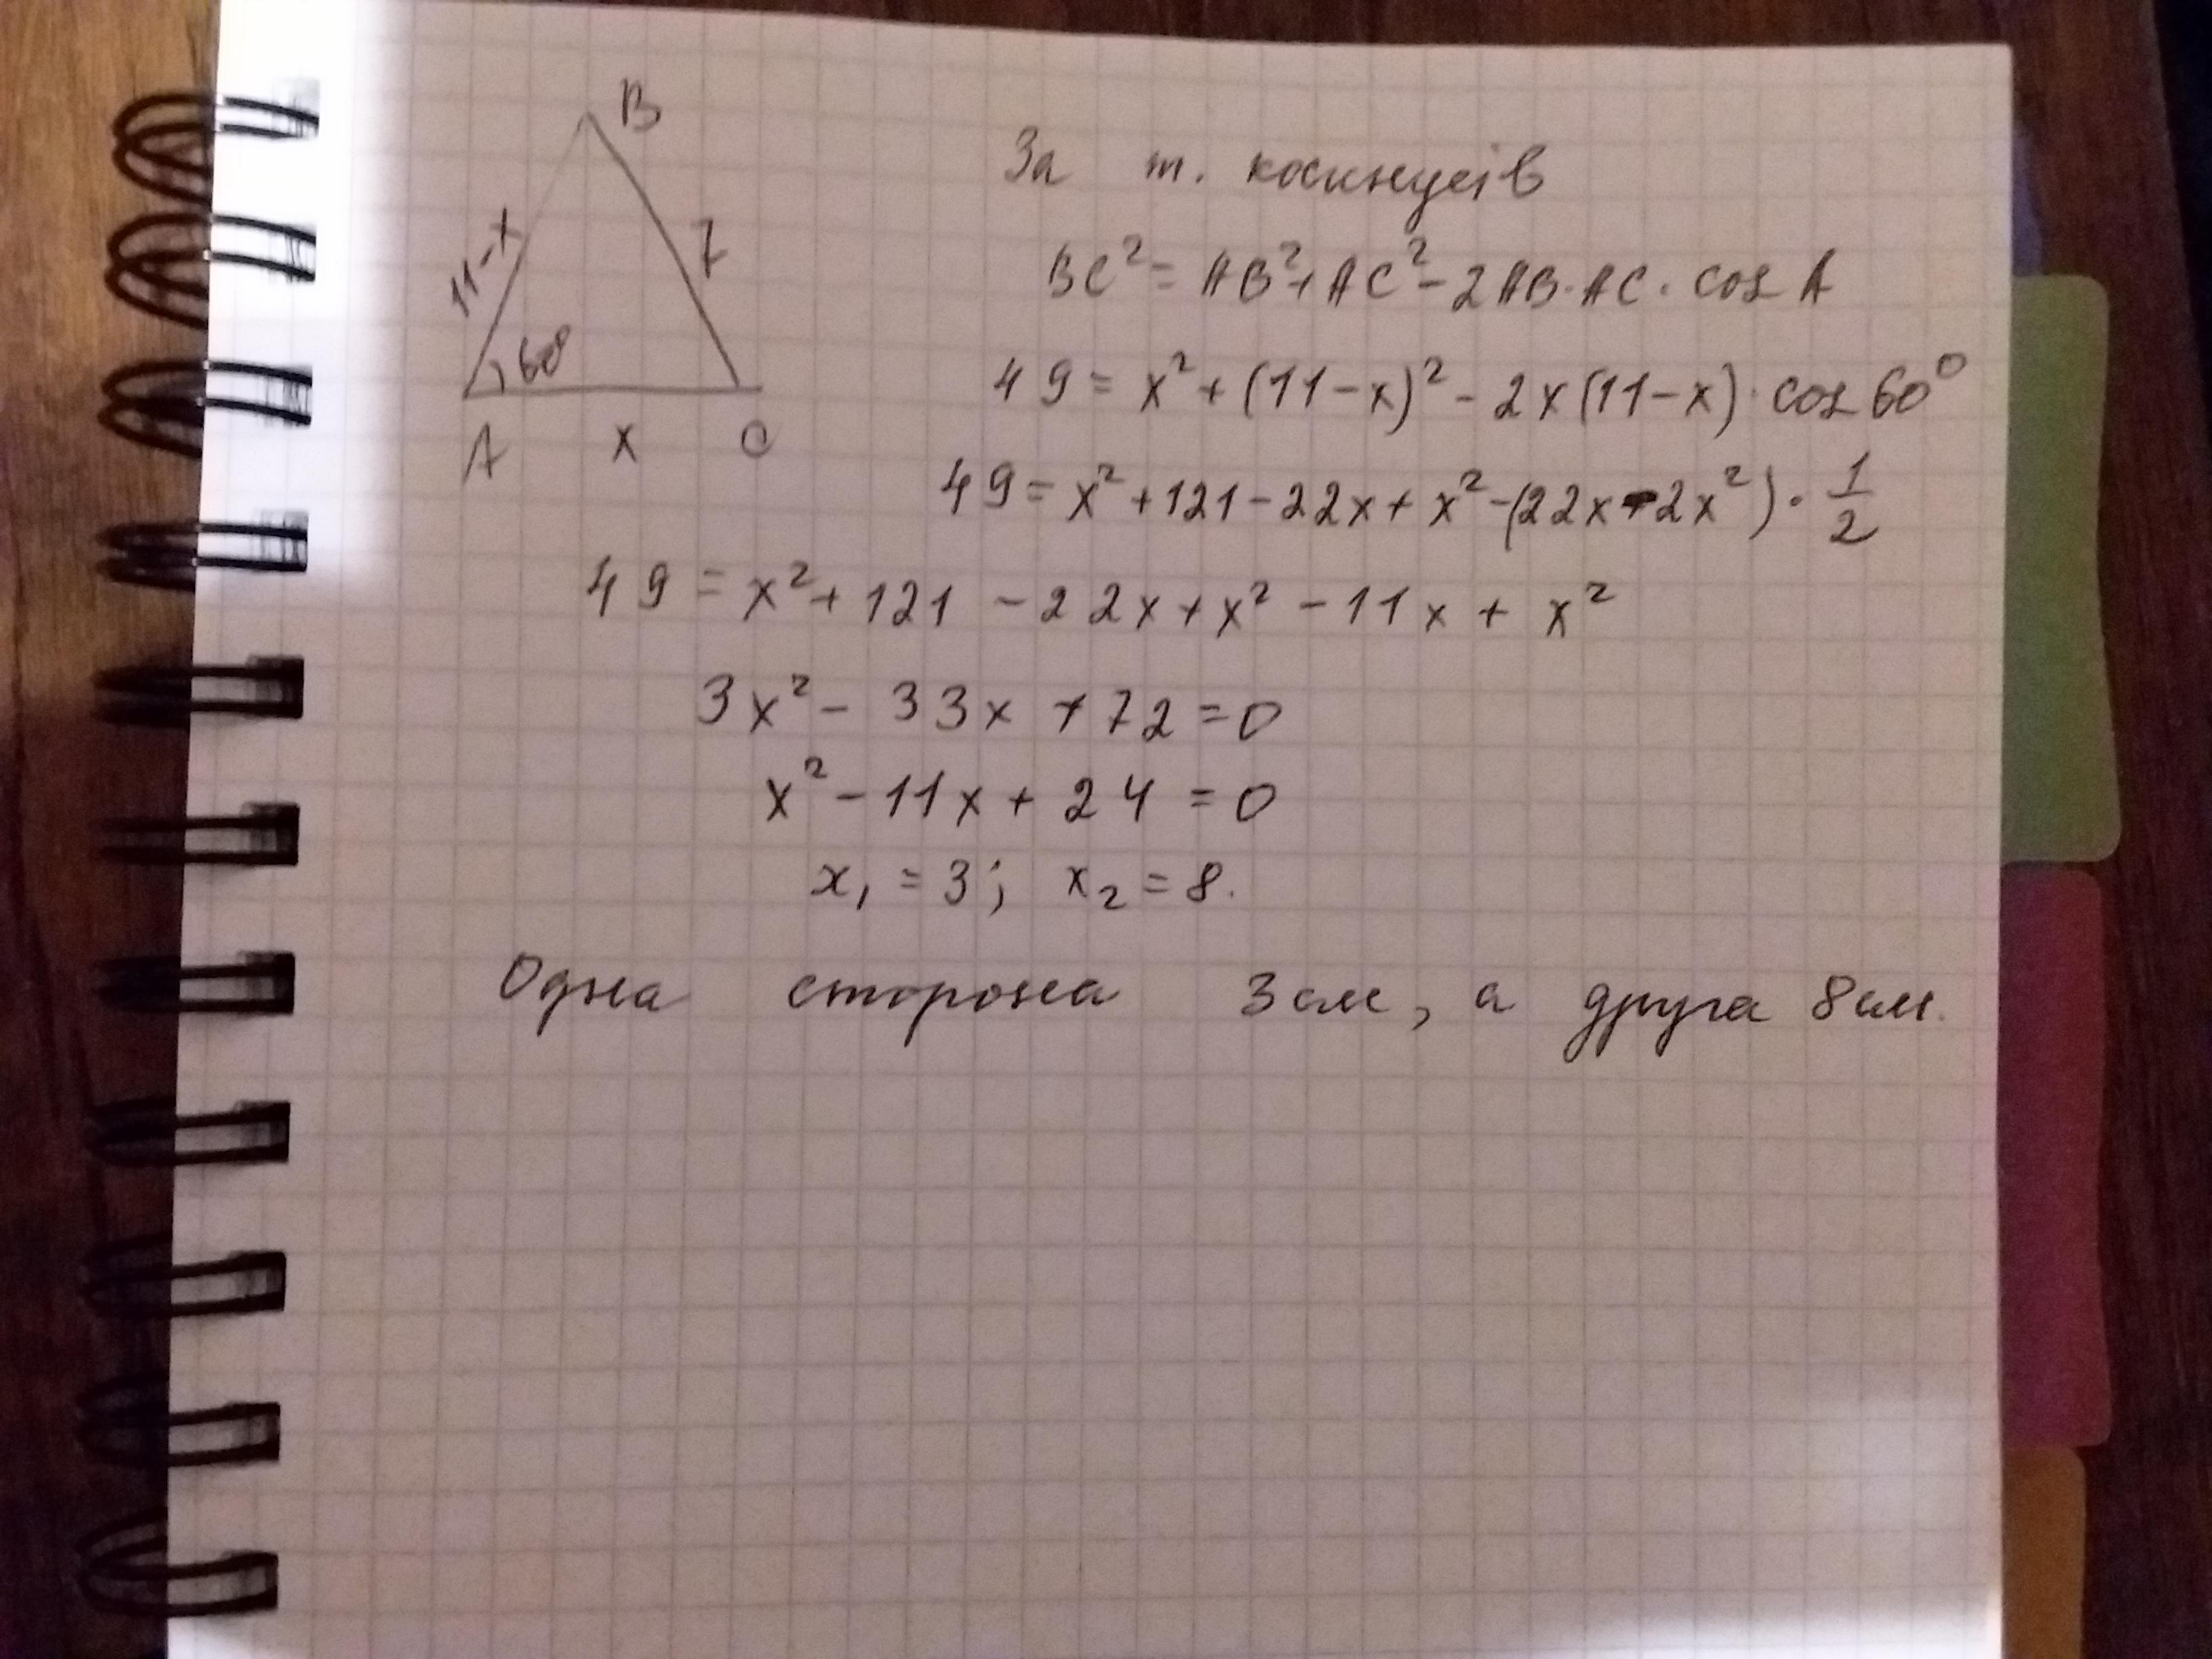 B
11-x
7
60°
A
x
C
За т. косинусів
BC² = AB² + AC² - 2AB·AC·cos A
49 = x² + (11-x)² - 2x(11-x)·cos60°
49 = x² + 121 - 22x + x² - (22x - 2x²)·1/2
49 = x² + 121 - 22x + x² - 11x + x²
3x² - 33x + 72 = 0
x² - 11x + 24 = 0
x₁ = 3; x₂ = 8.
Одна сторона 3см, а друга 8см.